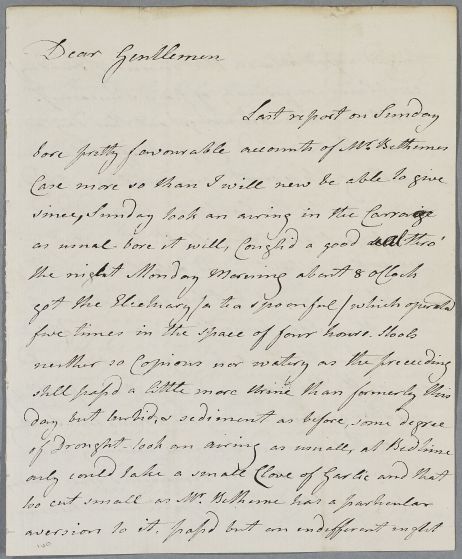 Dear Gentlemen
Last report on Sunday
bore pretty favourable accounts of Mr. Bethunes
Case more so than I will now be able to give
since, Sunday took an airing in the Carraige
as usual bore it well, Cough'd a good deal thro'
the night Monday Morening about 8 o'Clock
got the Electuary /a tea spoonful/ which operated
five times in the space of four hours. Stools
neither so Copious nor watery as the preceeding
still pass'd a little more Urine than formerly this
day but turbid, & sediment as before, some degree
of Drought took an airing as usual, at Bedtime
only could take a small Clove of Garlic and that
too cut small as Mr. Bethune has a particular
aversion to it. pass'd but an indifferent night